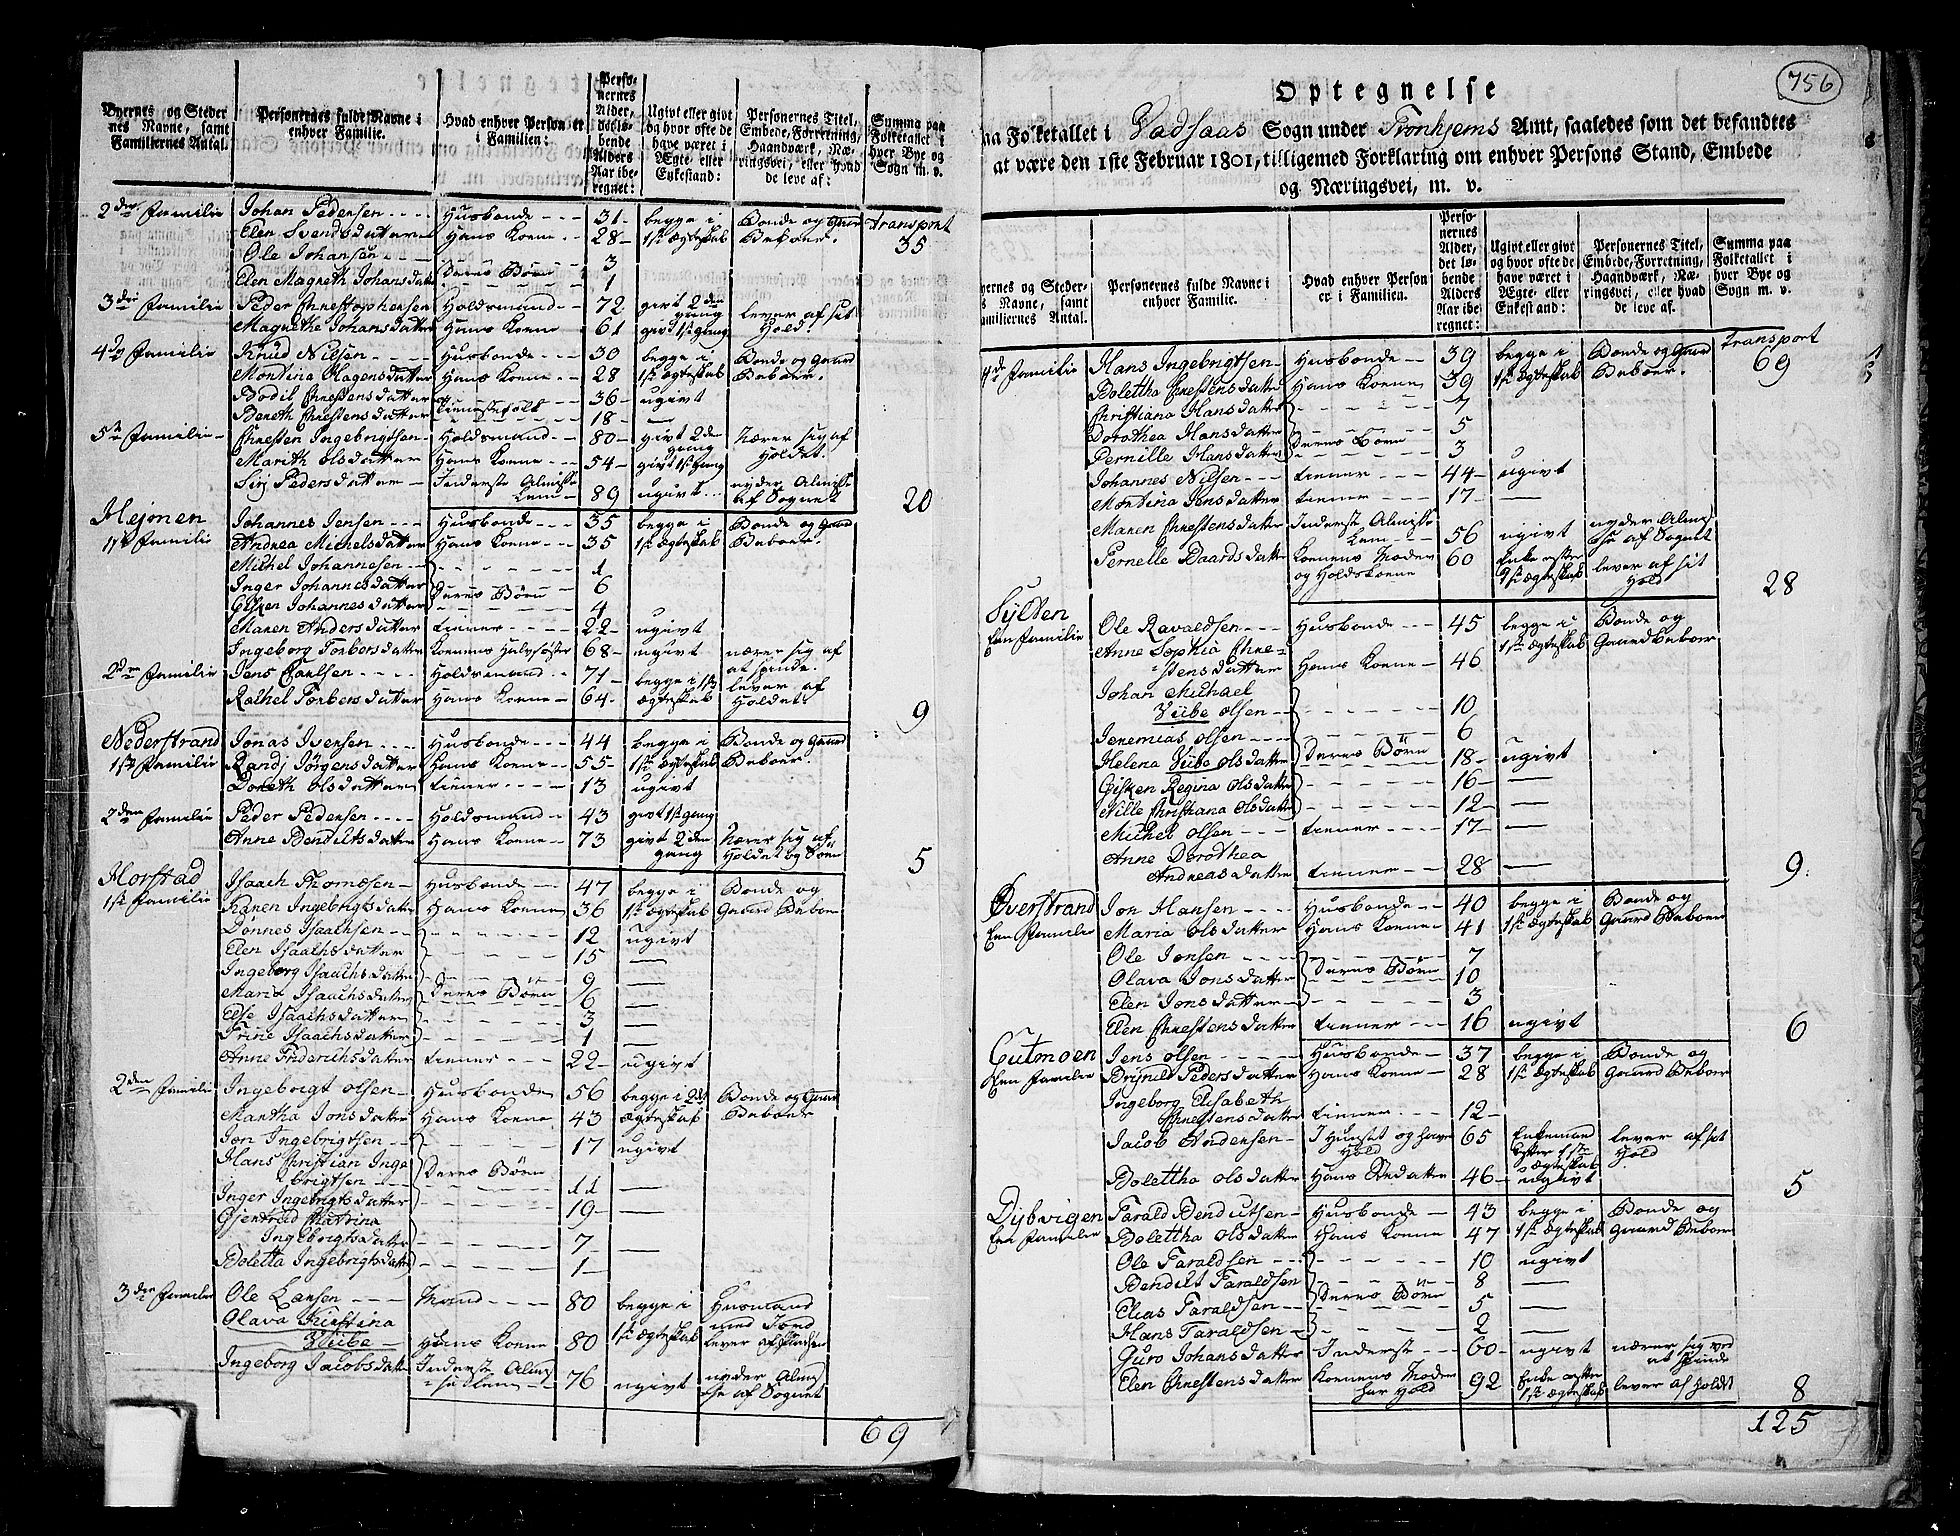 Byernes og Steder
nes Navne, samt
Familiernes Antal.
Personernes fulde Navne i
enhver Familie.
Hvad enhver Person er
i Familien:
Perso-
nernes
Alder,
det lø-
bende
Alders
Aar ibe-
regnet:
Ugivt eller givt
og hvor ofte de
have været i
Ægte- eller
Enkestand:
Personernes Titel,
Embede, Forretning,
Haandværk, Næ-
ringsvei, eller hvad
de leve af:
Summa paa
Folketallet i
hver Bye og
Sogn m. v.
2den Familie Johan Pedersen Husbonde 31 begge i Bonde og Gaard Transport
Elen Svendsdatter Hans Kone 28 1ste ægteskab Beboer. 35
Ole Johansen 3
Elen Magreth Johansdatter Deres Børn 1
3die Familie Peder Christophersen Holdsmand 72 givt 2den gang lever af sit
Magrethe Johansdatter Hans Kone 61 givt 1ste gang Hold.
4de Familie Knud Nilsen Husbonde 30 begge i Bonde og Gaard
Martina Hagensdatter Hans Kone 28 1ste ægteskab Beboer.
Bodil Christensdatter 36 ugivt
Bereth Christensdatter Tienestefolk 18 —
5te Familie Christen Ingebrigtsen Holdsmand 80 givt 2den gang nærer sig af
Marith Olsdatter Hans Kone 54 givt 1ste gang Holdet.
Siri Pedersdatter Inderste Almisse Lem 89 ugivt nyder Almisse af Sognet 20
Hejmen
1ste Familie Johannes Jensen Husbonde 35 begge i Bonde og Gaard
Andrea Michelsdatter Hans Kone 35 1ste ægteskab Beboer.
Michel Johannesen 1
Inger Johannesdatter Deres Børn 6
Gisken Johannesdatter 4
Maren Andersdatter tiener 22 ugivt
Ingeborg Torbersdatter Konens Halvsøster 68 ugivt nærer sig af at spinde.
2den Familie Jens Carlsen Holdsmand 71 begge i 1ste lever af
Rachel Torbersdatter Hans Kone 64 ægteskab Holdet. 9
Nederstrand Jonas Iversen Husbonde 44 begge i Bonde og Gaard
1ste Familie Randi Jørgensdatter Hans Kone 55 1ste ægteskab Beboer.
Doreth Olsdatter tiener 13 ugivt
2den Familie Peder Pedersen Holdsmand 43 givt 1ste gang
Anne Bendictsdatter Hans Kone 73 givt 2den gang nærer sig af Holdet og Søen 5
Horstad Isaach Thomæsen Husbonde 47 begge i Bonde og
1ste Familie Karen Ingebrigtsdatter Hans Kone 36 1ste ægteskab Gaard Beboer
Donnes Isaachsen 12 ugivt
Elen Isaachsdatter 15 —
Ingeborg Isaachsdatter 9 —
Maria Isaachsdatter Deres Børn 6 —
Else Isaachsdatter 3 —
Trine Isaachsdatter 1 —
Anne Friderichsdatter tiener 22 ugivt
2den Familie Ingebrigt Olsen Husbonde 56 begge i 2det Bonde og Gaard
Martha Jonsdatter Hans Kone 43 ægteskab Beboer
Jon Ingebrigtsen 17 ugivt
Hans Christian Inge
brigtsen Deres Børn 11 —
Inger Ingebrigtsdatter 19 —
Gjertrud Chatrina
Ingebrigtsdatter 7 —
Boletta Ingebrigtsdatter 1
3die Familie Ole Larsen Mand 80 begge i Husmand
Olava Kirstina
Wiibe Hans Kone 80 1ste ægteskab med Jord lever af
Ingeborg Jacobsdatter Inderst Almisselem 76 ugivt nyder Almisse af Sognet
69
756
Optegnelse
paa Folketallet i Vadsaas Sogn under Tronhjems Amt, saaledes som det befandtes
at være den 1ste Februar 1801, tilligemed Forklaring om enhver Persons Stand, Embede
og Næringsvei, m. v.
Byernes og Steder-
nes Navne, samt
Familiernes Antal.
Personernes fulde Navne i
enhver Familie.
Hvad enhver Person
er i Familien.
Perso-
nernes
Alder,
det lø-
bende
Alders
Aar ibe-
regnet:
Ugivt eller givt
og hvor ofte de
have været i
Ægte- eller
Enkestand:
Personernes Titel,
Embede, Forretning,
Haandværk, Næ-
ringsvei, eller hvad
de leve af.
Summa paa
Folketallet i
hver Bye og
Sogn m. v.
4de Familie Hans Ingebrigtsen Husbonde 39 begge i Bonde og Gaard Transport
Bolettha Christensdatter Hans Kone 39 1ste ægteskab Beboer. 69
Christiana Hansdatter 7
Dorothea Hansdatter Deres Børn 5
Pernille Hansdatter 3
Johannes Nilsen tiener 44 ugivt
Martina Jensdatter tiener 17 —
Maren Christensdatter Inderst Almisse Lem 56 ugivt nyder Almisse af Sognet
Pernelle Baardsdatter Konens Moder og Holdskone 60 Enke efter 1ste ægteskab lever af sit Hold 28
Sylten
Een Familie Ole Ravaldsen Husbonde 45 begge i Bonde og
Anne Sophia Chri-
stensdatter Hans Kone 46 1ste ægteskab Gaard Beboer
Johan Michael
Wiibe Olsen 10
Jeremias Olsen 6
Helena Wiibe Olsdatter Deres Børn 18 ugivt
Gisken Regina Olsdatter 16 —
Nille Christiana Olsdatter 12 —
Michel Olsen tiener 17 —
Anne Dorothea
Andreasdatter tiener 28 — 9
Øverstrand Jon Hansen Husbonde 40 begge i Bonde og
Een Familie Maria Olsdatter Hans Kone 41 1ste ægteskab Gaard Beboer
Ole Jonsen 7
Olava Jonsdatter Deres Børn 10
Elen Jonsdatter 3
Elen Christensdatter tiener 16 ugivt 6
Gutmoen Jens Olsen Husbonde 37 begge i Bonde og
Een Familie Brynild Pedersdatter Hans Kone 28 1ste ægteskab Gaard Beboer
Ingeborg Elisabeth
Christensdatter tiener 12
Jacob Andersen I Huuset og haver Hold 65 Enkemand efter 1ste ægteskab lever af sit Hold
Bolettha Olsdatter Hans Stedatter 46 ugivt 5
Dybvigen Tarald Bendictsen Husbonde 43 begge i Bonde og
Een Familie Bolettha Olsdatter Hans Kone 47 1ste ægteskab Gaard Beboer
Ole Taraldsen 10 ugivt
Bendict Taraldsen Deres Børn 8 —
Elias Taraldsen 5 —
Hans Taraldsen 2 —
Guro Johansdatter Inderste 60 ugivt nærer sig ved at spinde
Elen Christensdatter Konens Moder har Hold 92 Enke efter 1ste ægteskab lever af Holdet 8
125